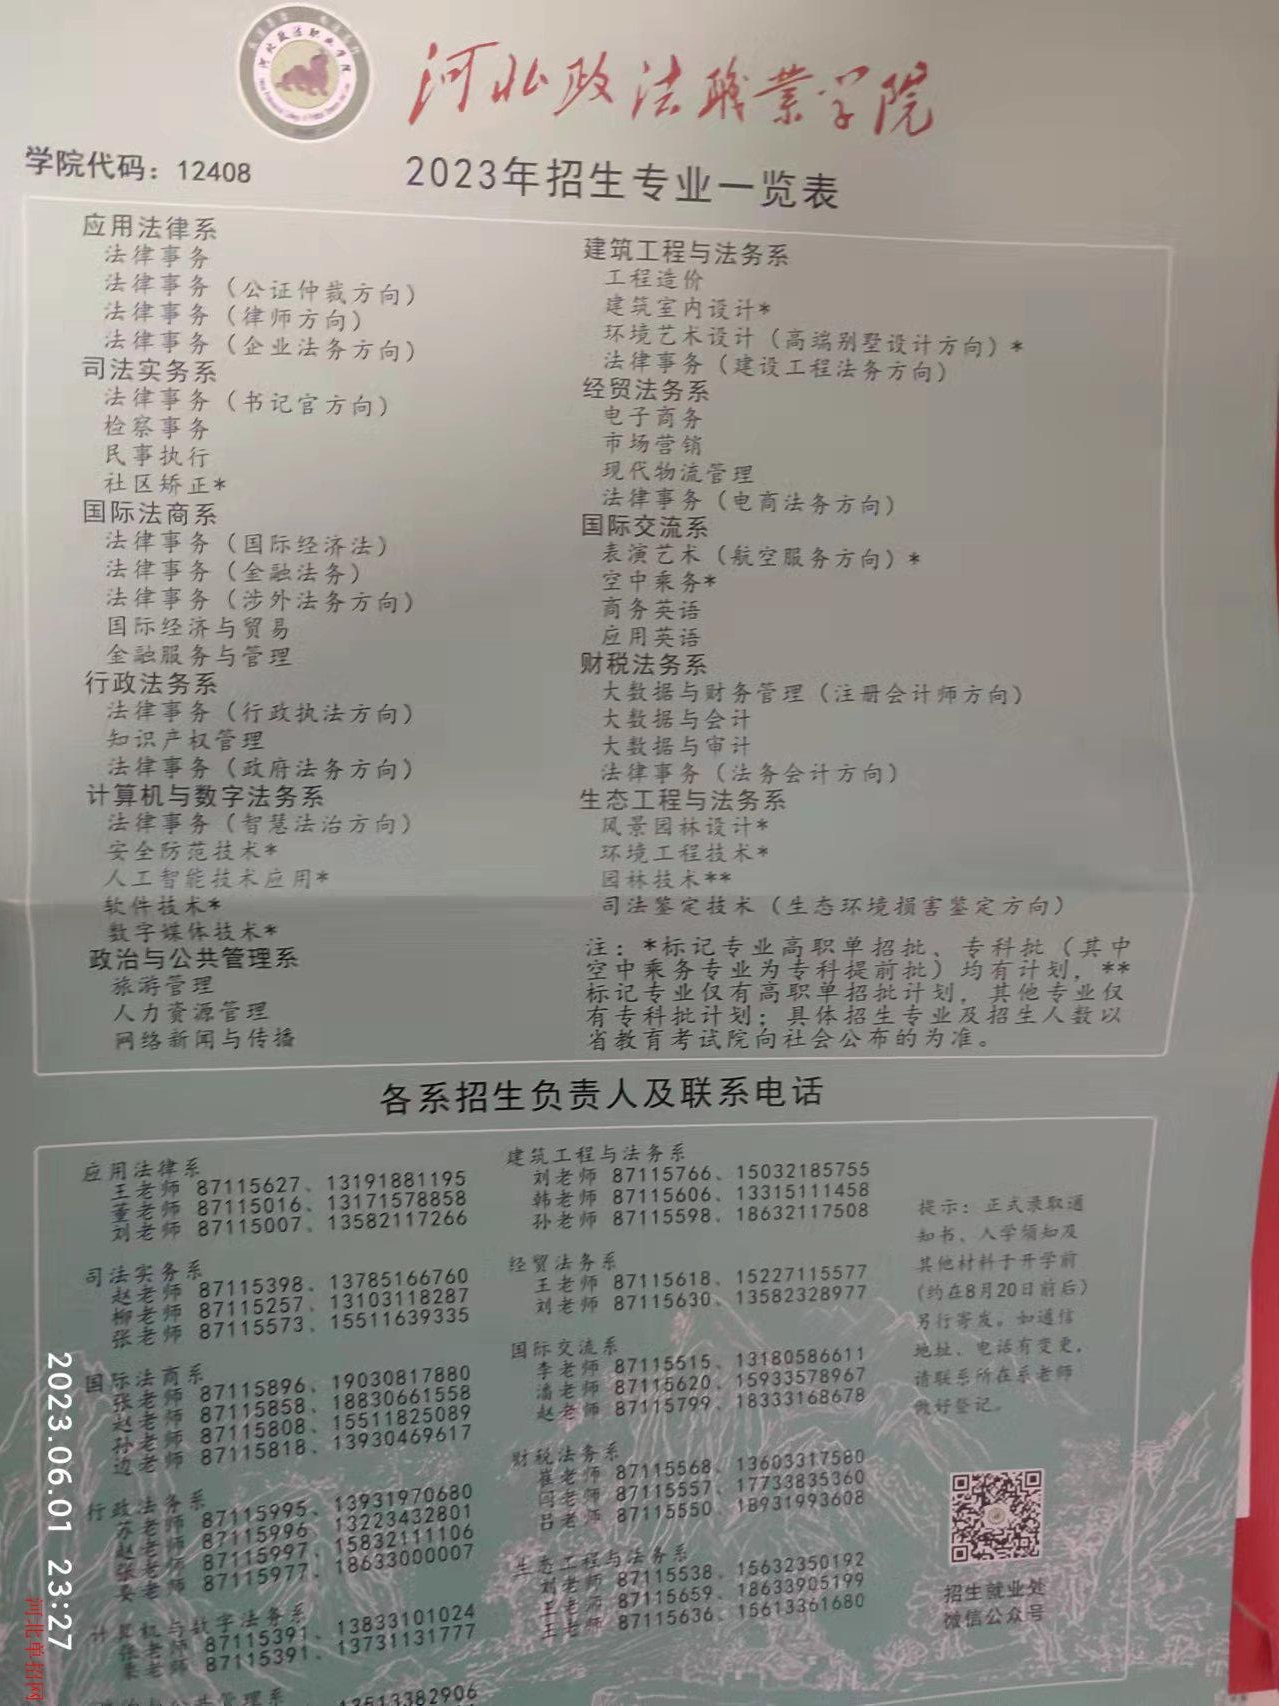 河北政法職業学院
学院代码：12408
2023年招生专业一览表
应用法律系
法律事务
法律事务（公证仲裁方向）
法律事务（律师方向）
法律事务（企业法务方向）
司法实务系
法律事务（书记官方向）
检察事务
民事执行
社区矫正*
国际法商系
法律事务（国际经济法）
法律事务（金融法务）
法律事务（涉外法务方向）
国际经济与贸易
金融服务与管理
行政法务系
法律事务（行政执法方向）
知识产权管理
法律事务（政府法务方向）
计算机与数字法务系
法律事务（智慧法治方向）
安全防范技术*
人工智能技术应用*
软件技术*
数字媒体技术*
政治与公共管理系
旅游管理
人力资源管理
网络新闻与传播
建筑工程与法务系
工程造价
建筑室内设计*
环境艺术设计（高端别墅设计方向）*
法律事务（建设工程法务方向）
经贸法务系
电子商务
市场营销
现代物流管理
法律事务（电商法务方向）
国际交流系
表演艺术（航空服务方向）*
空中乘务*
商务英语
应用英语
财税法务系
大数据与财务管理（注册会计师方向）
大数据与会计
大数据与审计
法律事务（法务会计方向）
生态工程与法务系
风景园林设计*
环境工程技术*
园林技术**
司法鉴定技术（生态环境损害鉴定方向）
注：*标记专业高职单招批、专科批（其中
空中乘务专业为专科提前批）均有计划，**
标记专业仅有高职单招批计划，其他专业仅
有专科批计划；具体招生专业及招生人数以
省教育考试院向社会公布的为准。
各系招生负责人及联系电话
应用法律系
王老师 87115627、13191881195
董老师 87115016、13171578858
刘老师 87115007、13582117266
司法实务系
赵老师 87115398、13785166760
柳老师 87115257、13103118287
张老师 87115573、15511639335
国际法商系
张老师 87115896、19030817880
赵老师 87115858、18830661558
孙老师 87115808、15511825089
边老师 87115818、13930469617
行政法务系
苏老师 87115995、13931970680
赵老师 87115996、13223432801
张老师 87115997、15832111106
安老师 87115977、18633000007
计算机与数字法务系
张老师 87115391、13833101024
老师 87115391、13731131777
公共管理系
13513382906
建筑工程与法务系
刘老师 87115766、15032185755
韩老师 87115606、13315111458
孙老师 87115598、18632117508
经贸法务系
王老师 87115618、15227115577
刘老师 87115630、13582328977
国际交流系
李老师 87115515、13180586611
潘老师 87115620、15933578967
赵老师 87115799、18333168678
财税法务系
崔老师 87115568、13603317580
闫老师 87115557、17733835360
吕老师 87115550、18931993608
生态工程与法务系
刘老师 87115538、15632350192
王老师 87115659、18633905199
王老师 87115636、15613361680
提示：正式录取通
知书、入学须知及
其他材料于开学前
（约在8月20日前后）
另行寄发。如通信
地址、电话有变更，
请联系所在系老师
做好登记。
招生就业处
微信公众号
2023.06.01 23:27
河北单招网